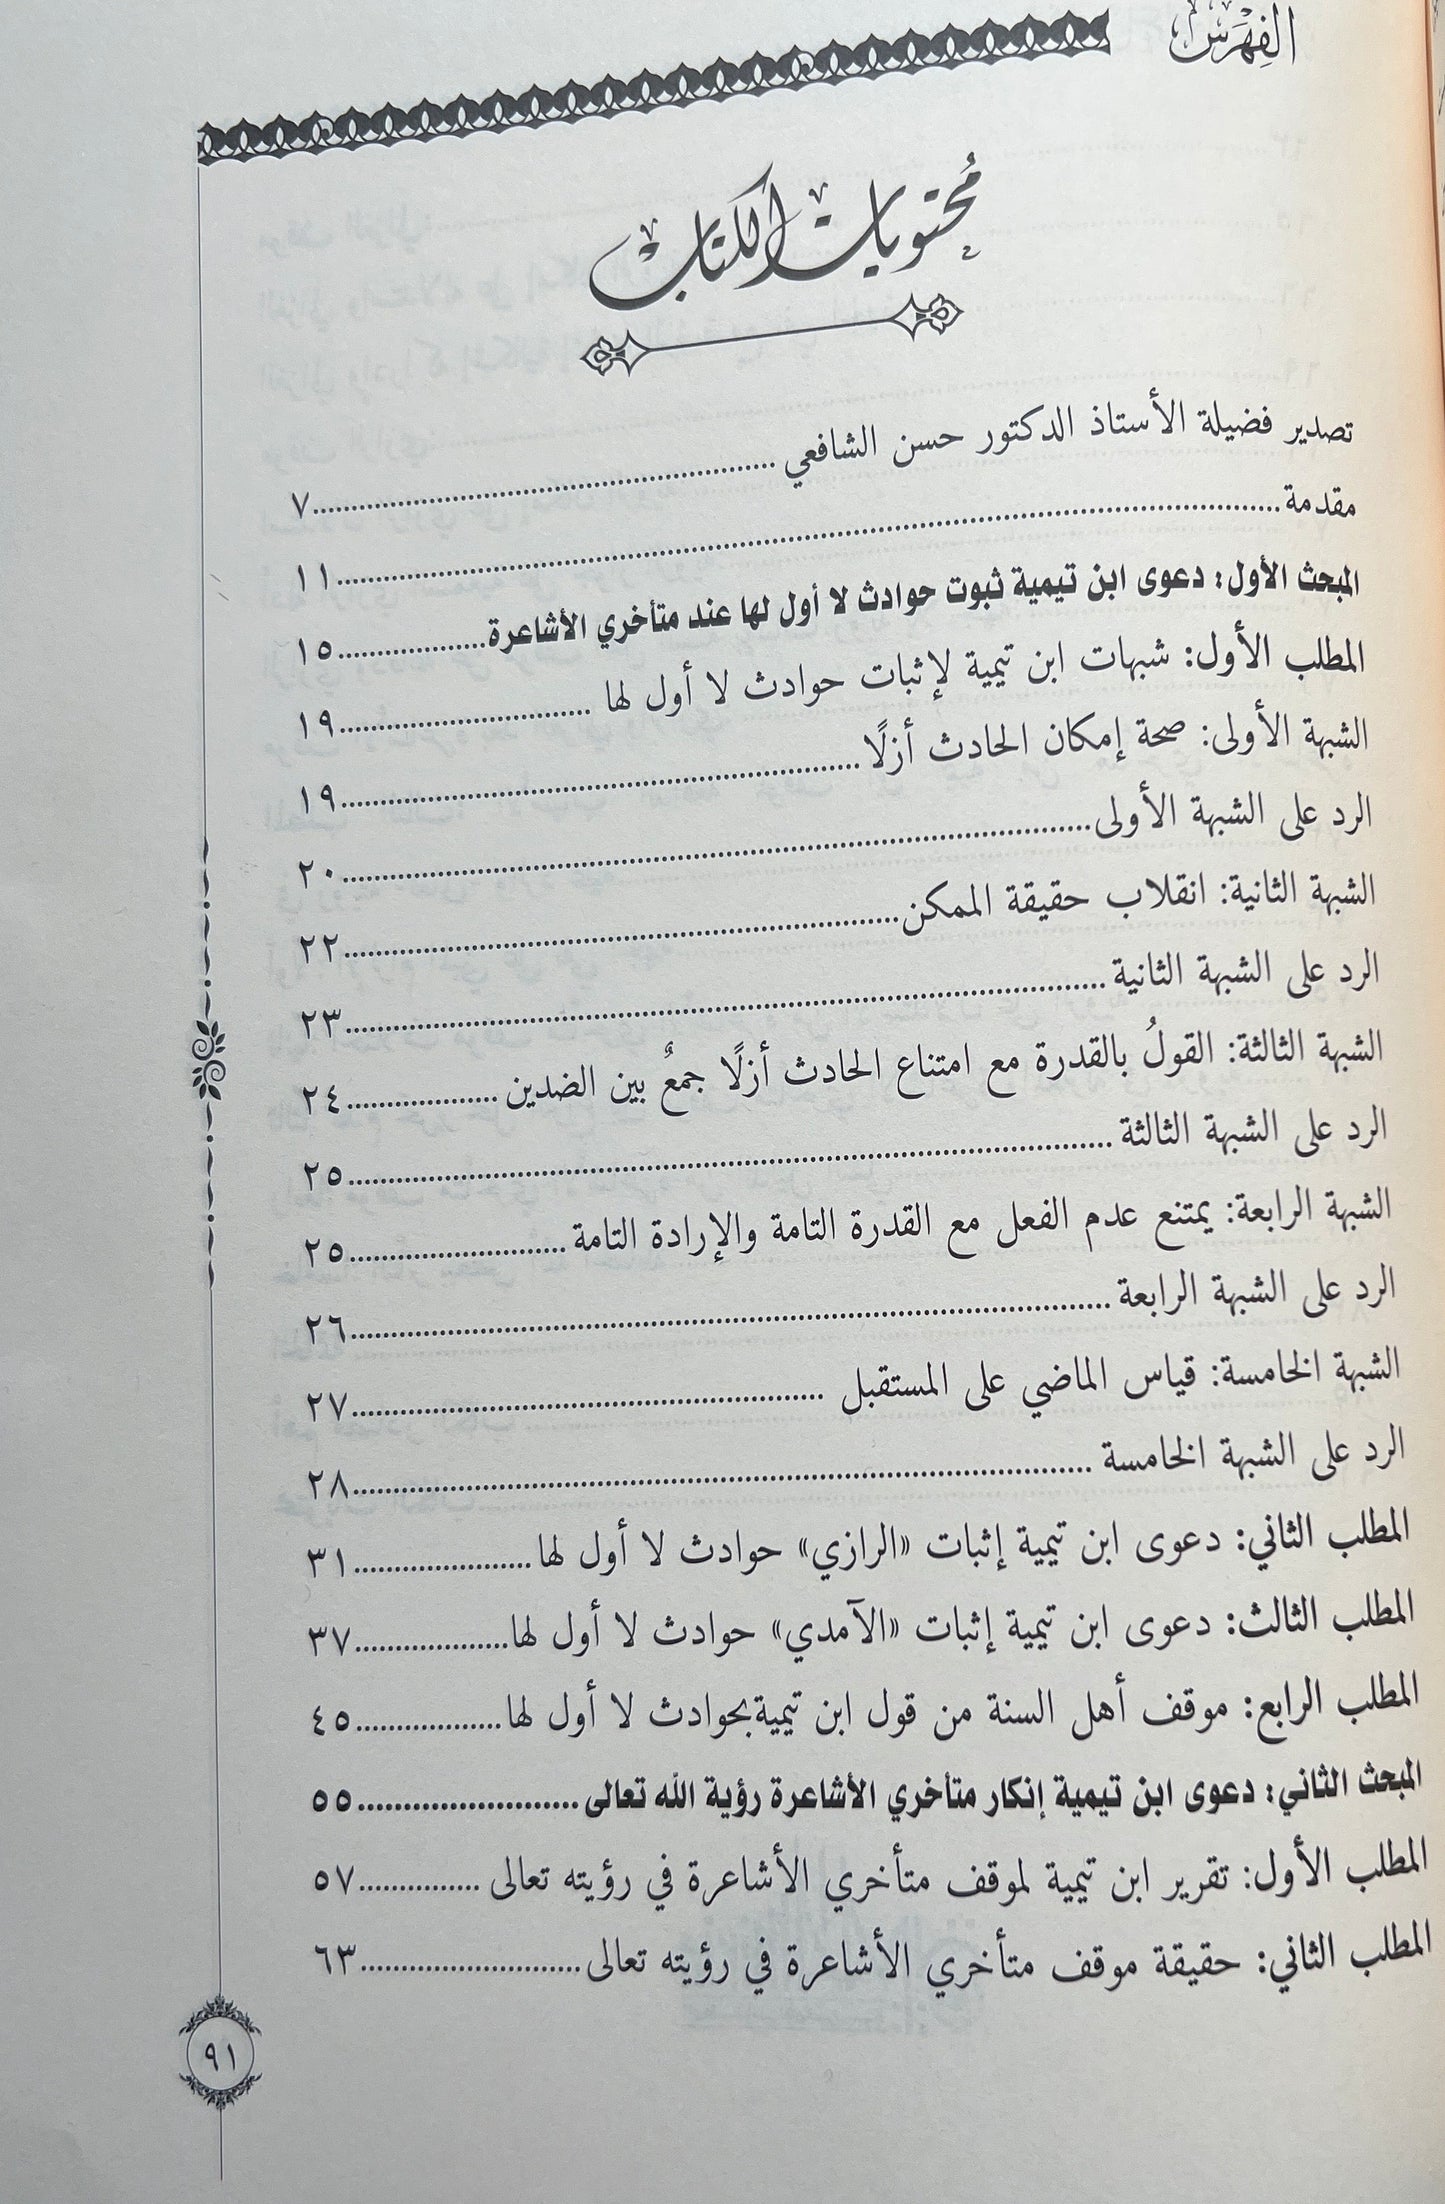 الفهرس
محتويات الكتاب
تصدير فضيلة الأستاذ الدكتور حسن الشافعي ٧
مقدمة ١١
المبحث الأول: دعوى ابن تيمية ثبوت حوادث لا أول لها عند متأخري الأشاعرة ١٥
المطلب الأول: شبهات ابن تيمية لإثبات حوادث لا أول لها ١٩
الشبهة الأولى: صحة إمكان الحادث أزلًا ١٩
الرد على الشبهة الأولى ٢٠
الشبهة الثانية: انقلاب حقيقة الممكن ٢٢
الرد على الشبهة الثانية ٢٣
الشبهة الثالثة: القولُ بالقدرة مع امتناع الحادث أزلًا جمعٌ بين الضدين ٢٤
الرد على الشبهة الثالثة ٢٥
الشبهة الرابعة: يمتنع عدم الفعل مع القدرة التامة والإرادة التامة ٢٥
الرد على الشبهة الرابعة ٢٦
الشبهة الخامسة: قياس الماضي على المستقبل ٢٧
الرد على الشبهة الخامسة ٢٨
المطلب الثاني: دعوى ابن تيمية إثبات «الرازي» حوادث لا أول لها ٣١
المطلب الثالث: دعوى ابن تيمية إثبات «الآمدي» حوادث لا أول لها ٣٧
المطلب الرابع: موقف أهل السنة من قول ابن تيمية بحوادث لا أول لها ٤٥
المبحث الثاني: دعوى ابن تيمية إنكار متأخري الأشاعرة رؤية الله تعالى ٥٥
المطلب الأول: تقرير ابن تيمية لموقف متأخري الأشاعرة في رؤيته تعالى ٥٧
المطلب الثاني: حقيقة موقف متأخري الأشاعرة في رؤيته تعالى ٦٣
٩١